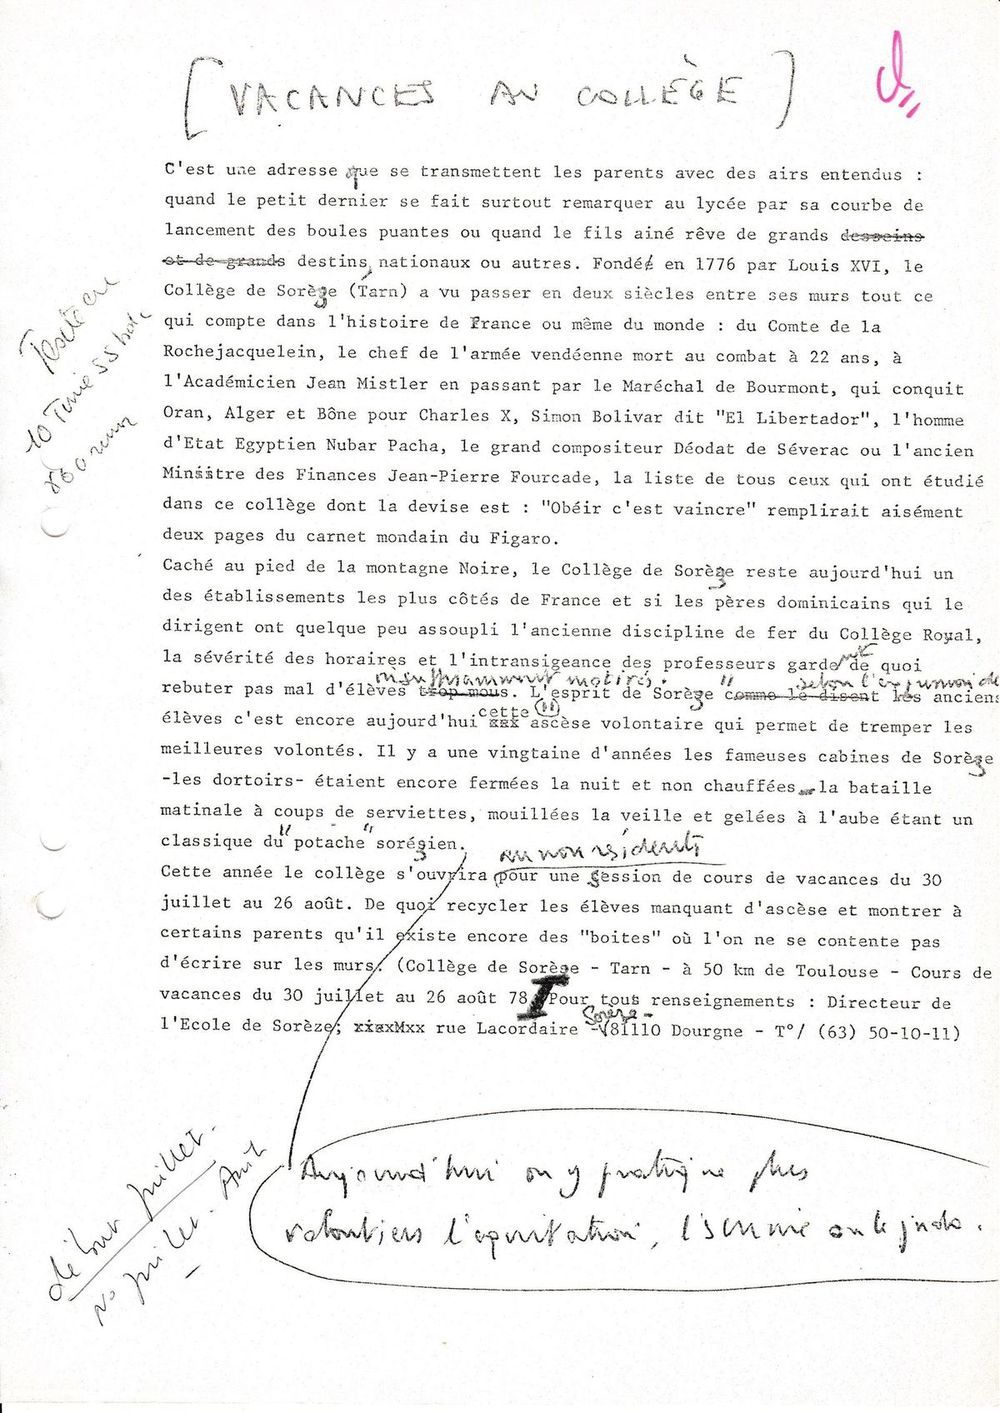 [VACANCES AU COLLÈGE]
C'est une adresse que se transmettent les parents avec des airs entendus :
quand le petit dernier se fait surtout remarquer au lycée par sa courbe de
lancement des boules puantes ou quand le fils ainé rêve de grands desseins
et de grands destins, nationaux ou autres. Fondé en 1776 par Louis XVI, le
Collège de Sorèze (Tarn) a vu passer en deux siècles entre ses murs tout ce
qui compte dans l'histoire de France ou même du monde : du Comte de la
Rochejacquelein, le chef de l'armée vendéenne mort au combat à 22 ans, à
l'Académicien Jean Mistler en passant par le Maréchal de Bourmont, qui conquit
Oran, Alger et Bône pour Charles X, Simon Bolivar dit "El Libertador", l'homme
d'Etat Egyptien Nubar Pacha, le grand compositeur Déodat de Séverac ou l'ancien
Ministre des Finances Jean-Pierre Fourcade, la liste de tous ceux qui ont étudié
dans ce collège dont la devise est : "Obéir c'est vaincre" remplirait aisément
deux pages du carnet mondain du Figaro.
Caché au pied de la montagne Noire, le Collège de Sorèze reste aujourd'hui un
des établissements les plus côtés de France et si les pères dominicains qui le
dirigent ont quelque peu assoupli l'ancienne discipline de fer du Collège Royal,
la sévérité des horaires et l'intransigeance des professeurs gardent de quoi
insuffisamment motivés. selon l'expression de
rebuter pas mal d'élèves trop mous. L'esprit de Sorèze " comme le disent les anciens
élèves c'est encore aujourd'hui cette " xxx ascèse volontaire qui permet de tremper les
meilleures volontés. Il y a une vingtaine d'années les fameuses cabines de Sorèze
-les dortoirs- étaient encore fermées la nuit et non chauffées, la bataille
matinale à coups de serviettes, mouillées la veille et gelées à l'aube étant un
classique du "potache" sorézien.
aux non résidents
Cette année le collège s'ouvrira pour une session de cours de vacances du 30
juillet au 26 août. De quoi recycler les élèves manquant d'ascèse et montrer à
certains parents qu'il existe encore des "boites" où l'on ne se contente pas
d'écrire sur les murs. (Collège de Sorèze - Tarn - à 50 km de Toulouse - Cours de
vacances du 30 juillet au 26 août 78. Pour tous renseignements : Directeur de
l'Ecole de Sorèze; xixxMxx rue Lacordaire Sorèze - 81110 Dourgne - T°/ (63) 50-10-11)
Aujourd'hui on y pratique plus
volontiers l'équitation, l'escrime ou le judo.
début juillet.
No Juillet - Août